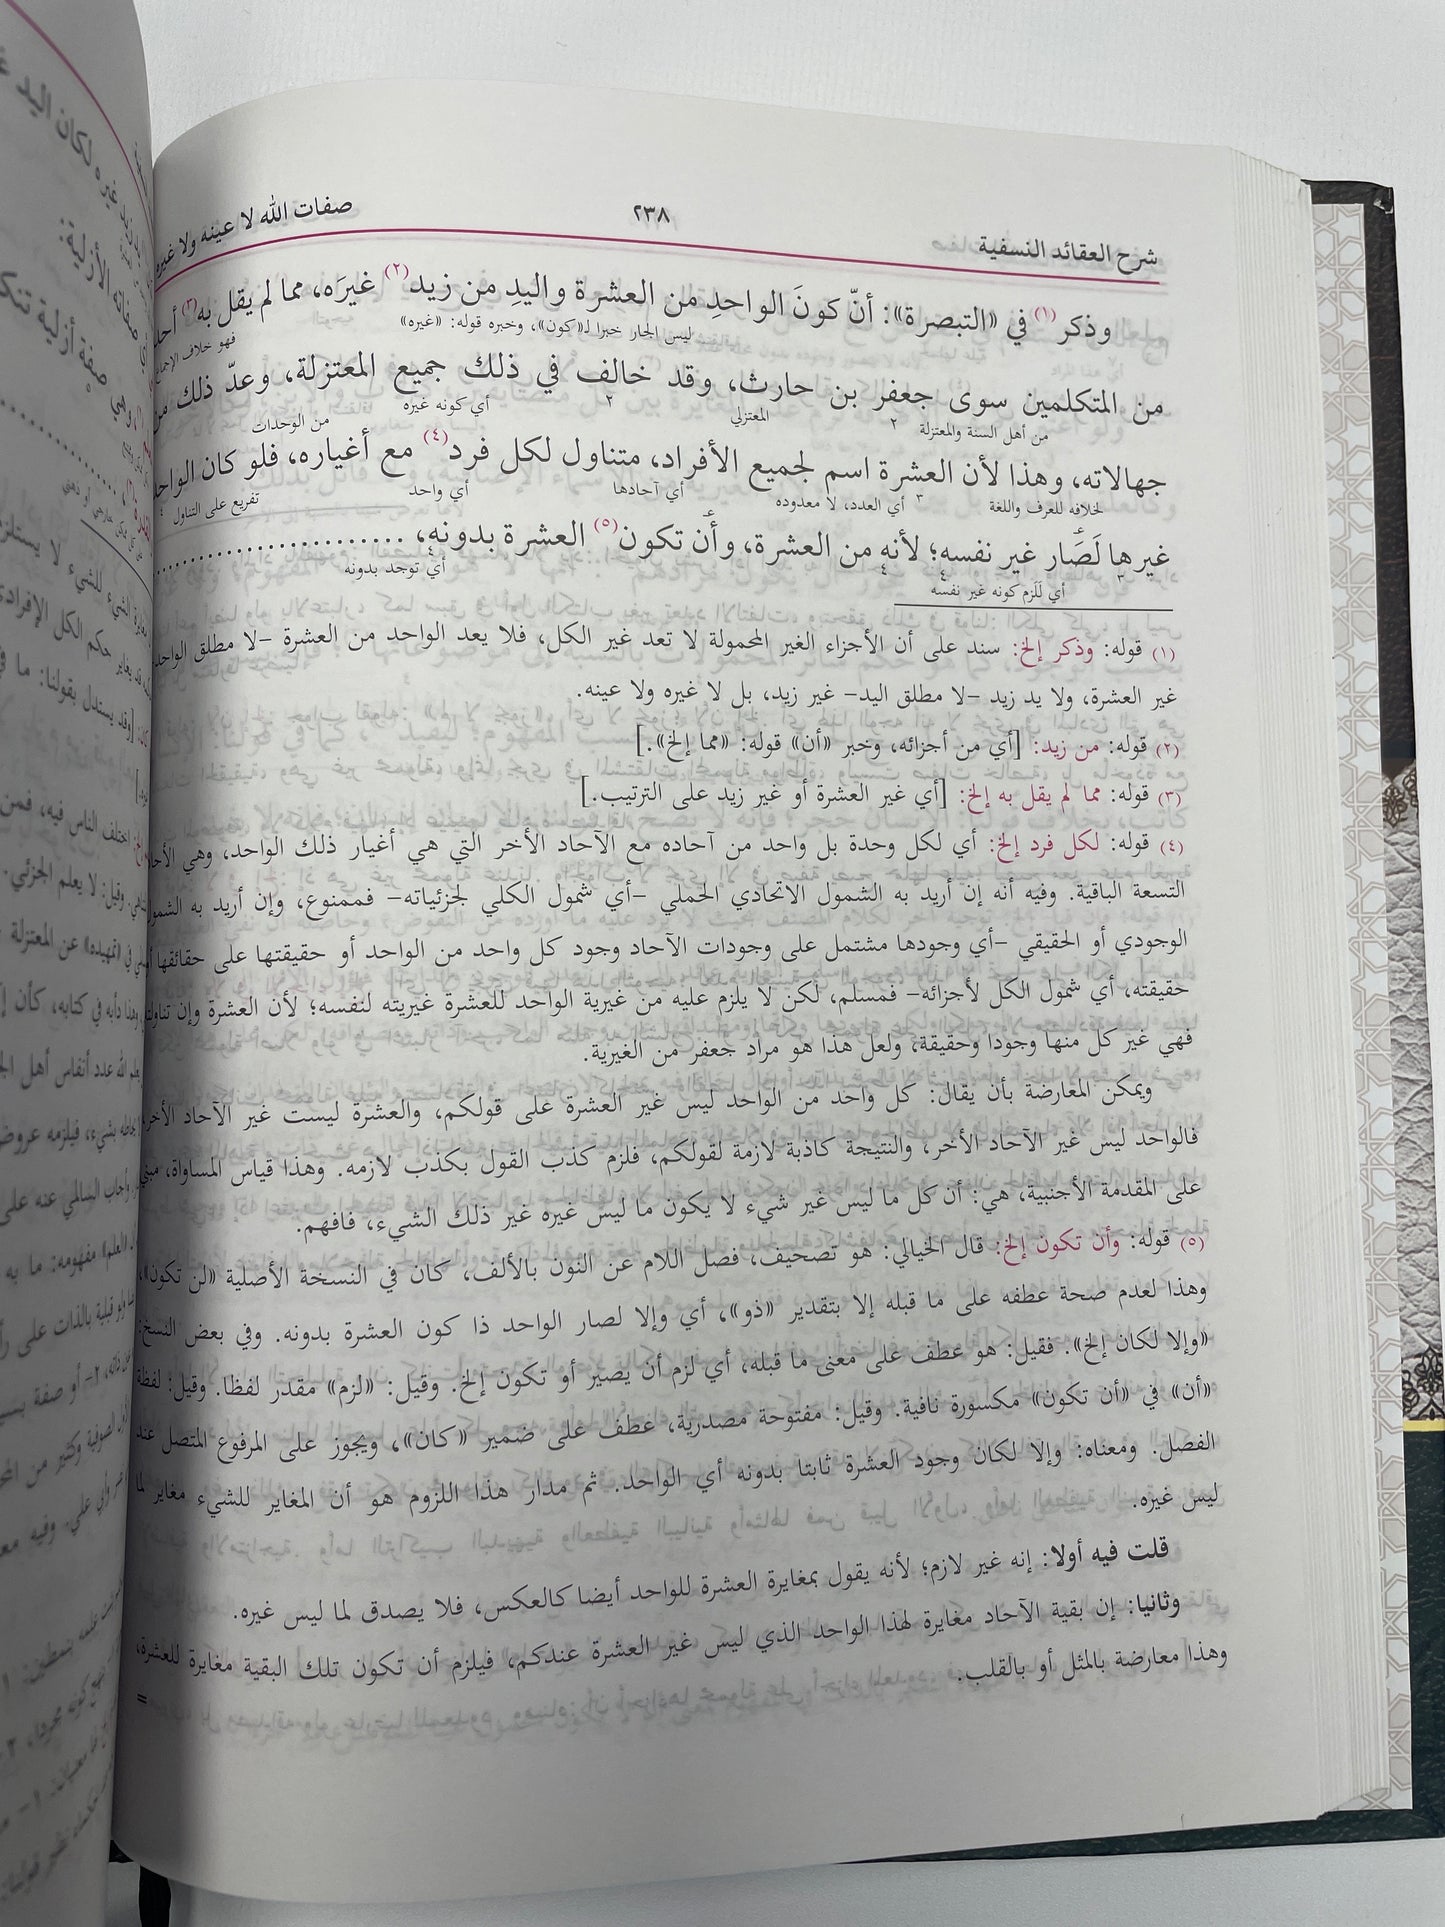 شرح العقائد النسفية
٢٣٨
صفات الله لا عينه ولا غيره
وذكر(١) في «التبصرة»: أنّ كونَ الواحدِ من العشرة واليدِ من زيد(٢) غيرَه، مما لم يقل به(٣)
ليس الجار خبرا لـ«كون»، وخبره قوله: «غيره»
فهو خلاف الإجماع
من المتكلمين سوى جعفر بن حارث، وقد خالف في ذلك جميع المعتزلة، وعدّ ذلك من
من أهل السنة والمعتزلة ٢ المعتزلي ٢ أي كونه غيره من الوحدات
جهالاته، وهذا لأن العشرة اسم لجميع الأفراد، متناول لكل فرد(٤) مع أغياره، فلو كان الواحد
لخلافه للعرف واللغة ٣ أي العدد، لا معدوده أي آحادها أي واحد تفريع على التناول ٤
غيرها لَصَار غير نفسه؛ لأنه من العشرة، وأن تكون(٥) العشرة بدونه، ..........................
٣ أي لَلَزم كونه غير نفسه ٤ ٤ أي توجد بدونه
(١) قوله: وذكر إلخ: سند على أن الأجزاء الغير المحمولة لا تعد غير الكل، فلا يعد الواحد من العشرة –لا مطلق الواحد–
غير العشرة، ولا يد زيد –لا مطلق اليد– غير زيد، بل لا غيره ولا عينه.
(٢) قوله: من زيد: [أي من أجزائه، وخبر «أن» قوله: «مما إلخ».]
(٣) قوله: مما لم يقل به إلخ: [أي غير العشرة أو غير زيد على الترتيب.]
(٤) قوله: لكل فرد إلخ: أي لكل وحدة بل واحد من آحاده مع الآحاد الأخر التي هي أغيار ذلك الواحد، وهي الآحاد
التسعة الباقية. وفيه أنه إن أريد به الشمول الاتحادي الحملي –أي شمول الكلي لجزئياته– فممنوع، وإن أريد به الشمول
الوجودي أو الحقيقي –أي وجودها مشتمل على وجودات الآحاد وجود كل واحد من الواحد أو حقيقتها على حقائقها
حقيقته، أي شمول الكل لأجزائه– فمسلم، لكن لا يلزم عليه من غيرية الواحد للعشرة غيريته لنفسه؛ لأن العشرة وإن تناولت
فهي غير كل منها وجودا وحقيقة، ولعل هذا هو مراد جعفر من الغيرية.
ويمكن المعارضة بأن يقال: كل واحد من الواحد ليس غير العشرة على قولكم، والعشرة ليست غير الآحاد الأخر،
فالواحد ليس غير الآحاد الأخر، والنتيجة كاذبة لازمة لقولكم، فلزم كذب القول بكذب لازمه. وهذا قياس المساواة، مبني
على المقدمة الأجنبية، هي: أن كل ما ليس غير شيء لا يكون ما ليس غيره غير ذلك الشيء، فافهم.
(٥) قوله: وأن تكون إلخ: قال الخيالي: هو تصحيف، فصل اللام عن النون بالألف، كان في النسخة الأصلية «لن تكون»،
وهذا لعدم صحة عطفه على ما قبله إلا بتقدير «ذو»، أي وإلا لصار الواحد ذا كون العشرة بدونه. وفي بعض النسخ:
«وإلا لكان إلخ». فقيل: هو عطف على معنى ما قبله، أي لزم أن يصير أو تكون إلخ. وقيل: «لزم» مقدر لفظا. وقيل: لفظة
«أن» في «أن تكون» مكسورة نافية. وقيل: مفتوحة مصدرية، عطف على ضمير «كان»، ويجوز على المرفوع المتصل عند
الفصل. ومعناه: وإلا لكان وجود العشرة ثابتا بدونه أي الواحد. ثم مدار هذا اللزوم هو أن المغاير للشيء مغاير لما
ليس غيره.
قلت فيه أولا: إنه غير لازم؛ لأنه يقول بمغايرة العشرة للواحد أيضا كالعكس، فلا يصدق لما ليس غيره.
وثانيا: إن بقية الآحاد مغايرة لهذا الواحد الذي ليس غير العشرة عندكم، فيلزم أن تكون تلك البقية مغايرة للعشرة،
وهذا معارضة بالمثل أو بالقلب.
=